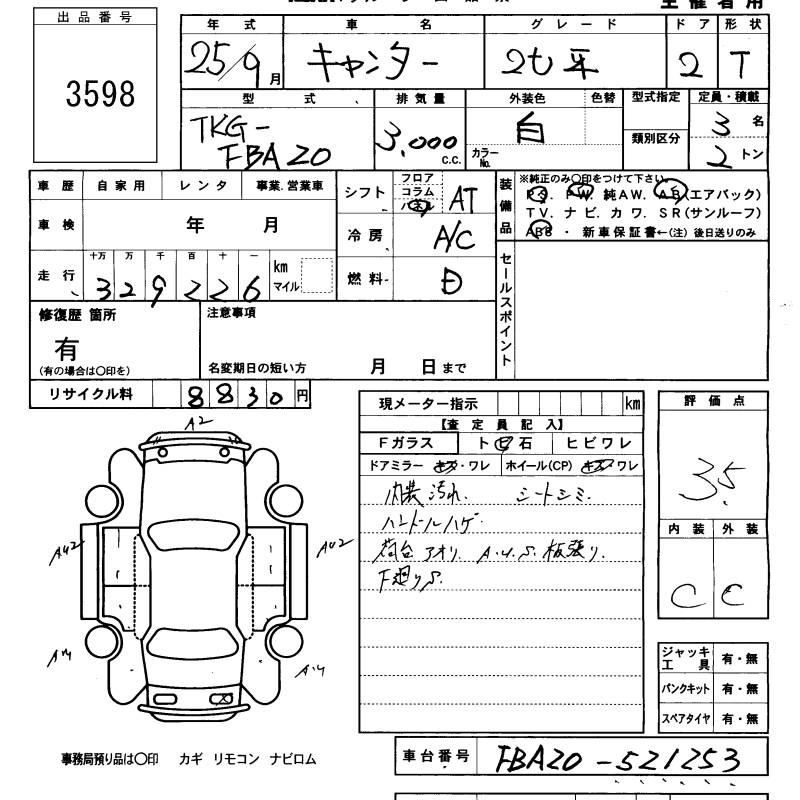 主催者用
出品番号
3598
年式 車名 グレード ドア 形状
25/9月 キャンター 2t 平 2 T
型式 排気量 外装色 色替 型式指定 定員・積載
TKG-FBA20 3,000 C.C. 白 カラーNo. 類別区分 3名 2トン
車歴 自家用 レンタ 事業.営業車
車検 年 月
走行 十万 万 千 百 十 一
329226 km マイル
シフト フロア コラム パネル AT
冷房 A/C
燃料 D
装備品 ※純正のみ○印をつけて下さい。
PS. PW. 純AW. AB(エアバック)
TV. ナビ. カワ. SR(サンルーフ)
ABS ・ 新車保証書←(注) 後日送りのみ
セールスポイント
修復歴 箇所
有
(有の場合は○印を)
注意事項
名変期日の短い方 月 日まで
リサイクル料 8830円
現メーター指示 km
【査定員記入】
Fガラス ト ビ 石 ヒビワレ
ドアミラー キズ・ワレ ホイール(CP) キズ・ワレ
内装汚れ. シートシミ.
ハンドルハゲ.
荷台 アオリ. A.U.S. 板張り.
下廻りS.
評価点
3.5
内装 外装
C C
A2
AU2 AU2
A4 A4
ジャッキ工具 有・無
パンクキット 有・無
スペアタイヤ 有・無
事務局預り品は○印 カギ リモコン ナビロム
車台番号 FBA20-521253